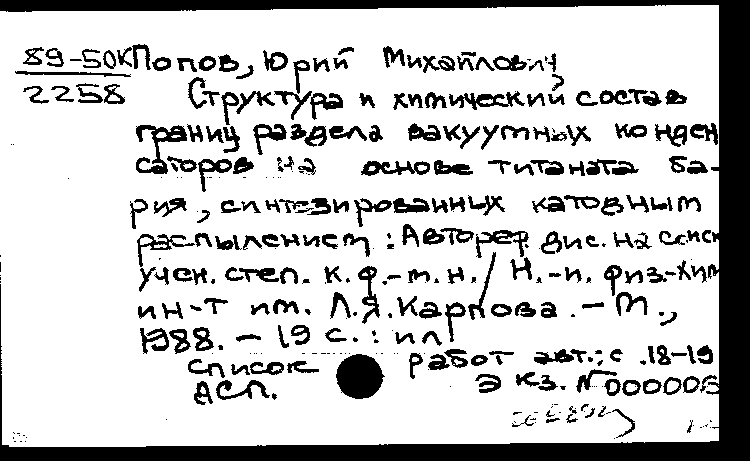 89-50К Попов, Юрий Михайлович
2258 Структура и химический состав
границ раздела вакуумных конден
саторов на основе титаната ба-
рия, синтезированных катодным
распылением : Автореф. дис. на соиск
учен. степ. к. ф.-м. н. / Н.-и. физ.-хим
ин-т им. Л.Я. Карпова. - М.,
1988. - 19 с. : ил.
Список работ авт.: с. 18-19
АСП. Экз. N 000006